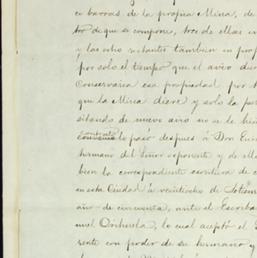 co barras de la propia Mina, de
tor de que se compone, trece de ellas in
y las ocho restantes tambien en prop
por solo el tiempo que el avio diera
Conservaria esa propiedad por t
que la Mina diere y solo la par
sitando de nuevo avio no se le hic
contrato
lo pasó despues á Don Euse
hermano del Señor exponente y de ella
bien la correspondiente escritura de c
en esta Ciudad á veintiocho de Setiem
año de cincuenta, ante el Escriba
nuel Orihuela, lo cual aceptó el S
sente con poder de su hermano y